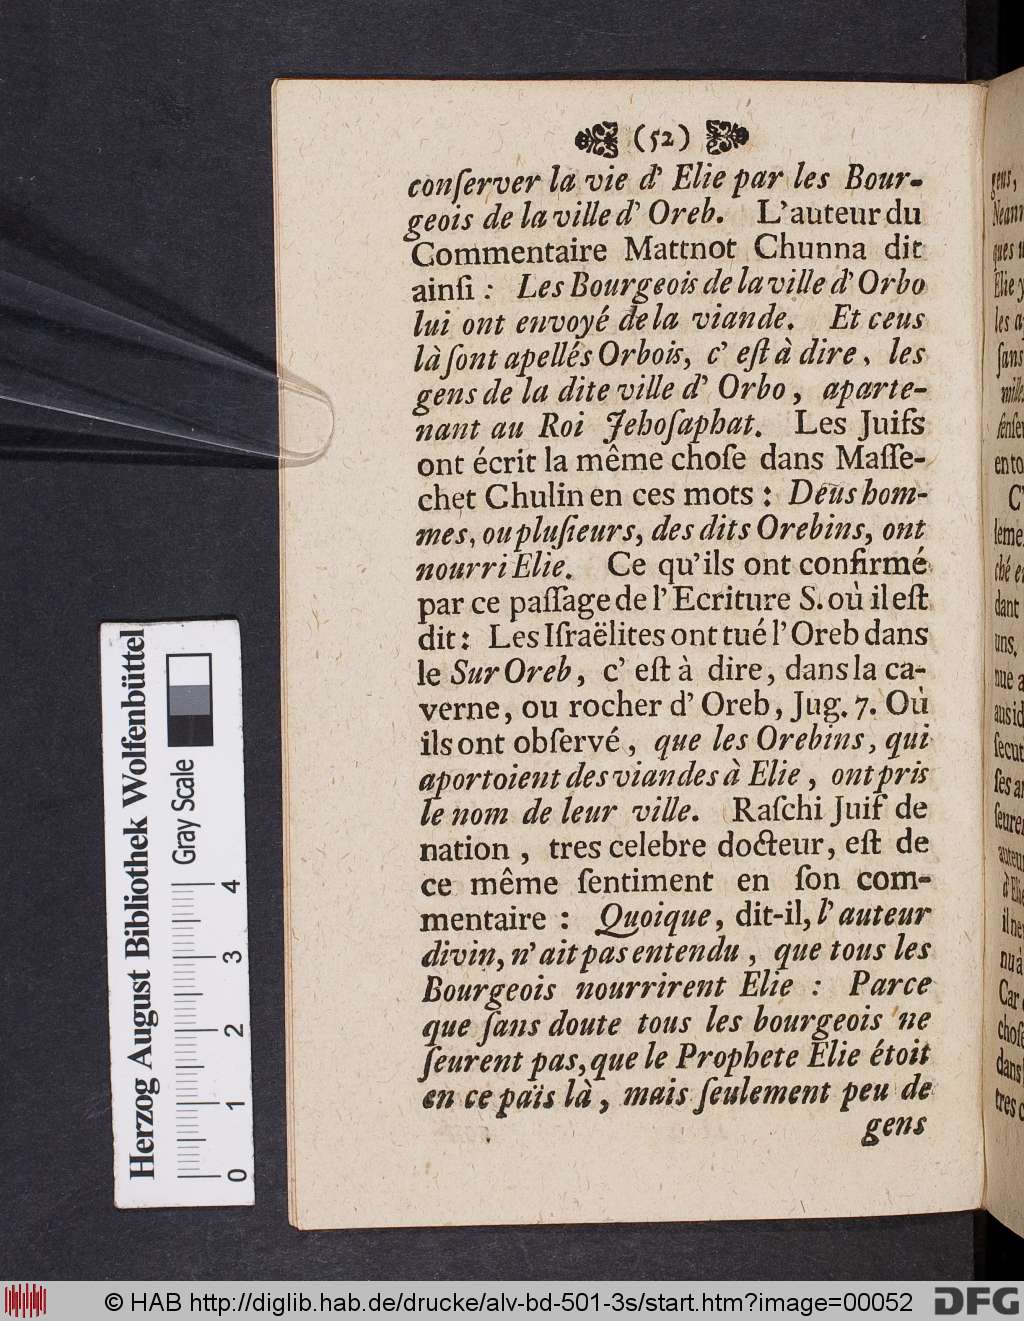 (52)
conſerver la vie d' Elie par les Bour-
geois de la ville d' Oreb. L'auteur du
Commentaire Mattnot Chunna dit
ainſi : Les Bourgeois de la ville d' Orbo
lui ont envoyé de la viande. Et ceus
là ſont apellés Orbois, c' eſt à dire, les
gens de la dite ville d' Orbo, aparte-
nant au Roi Jehoſaphat. Les Juifs
ont écrit la même choſe dans Maſſe-
chet Chulin en ces mots : Deus hom-
mes, ou pluſieurs, des dits Orebins, ont
nourri Elie. Ce qu'ils ont confirmé
par ce paſſage de l' Ecriture S. où il eſt
dit : Les Iſraëlites ont tué l' Oreb dans
le Sur Oreb, c' eſt à dire, dans la ca-
verne, ou rocher d' Oreb, Jug. 7. Où
ils ont obſervé, que les Orebins, qui
aportoient des viandes à Elie, ont pris
le nom de leur ville. Raſchi Juif de
nation, tres celebre docteur, eſt de
ce même ſentiment en ſon com-
mentaire : Quoique, dit-il, l' auteur
divin, n' ait pas entendu, que tous les
Bourgeois nourrirent Elie : Parce
que ſans doute tous les bourgeois ne
ſeurent pas, que le Prophete Elie étoit
en ce païs là, mais ſeulement peu de
gens
gens,
ques
Elie y
les a
ſans
mille
en to
C'
leme
ché e
dant
uns.
nue a
aus id
ſecut
ſes ar
auteu
d'Elie
il ne
nu à
Car
choſe
dans
tres c
Herzog August Bibliothek Wolfenbüttel
Gray Scale
0 1 2 3 4
© HAB http://diglib.hab.de/drucke/alv-bd-501-3s/start.htm?image=00052
DFG